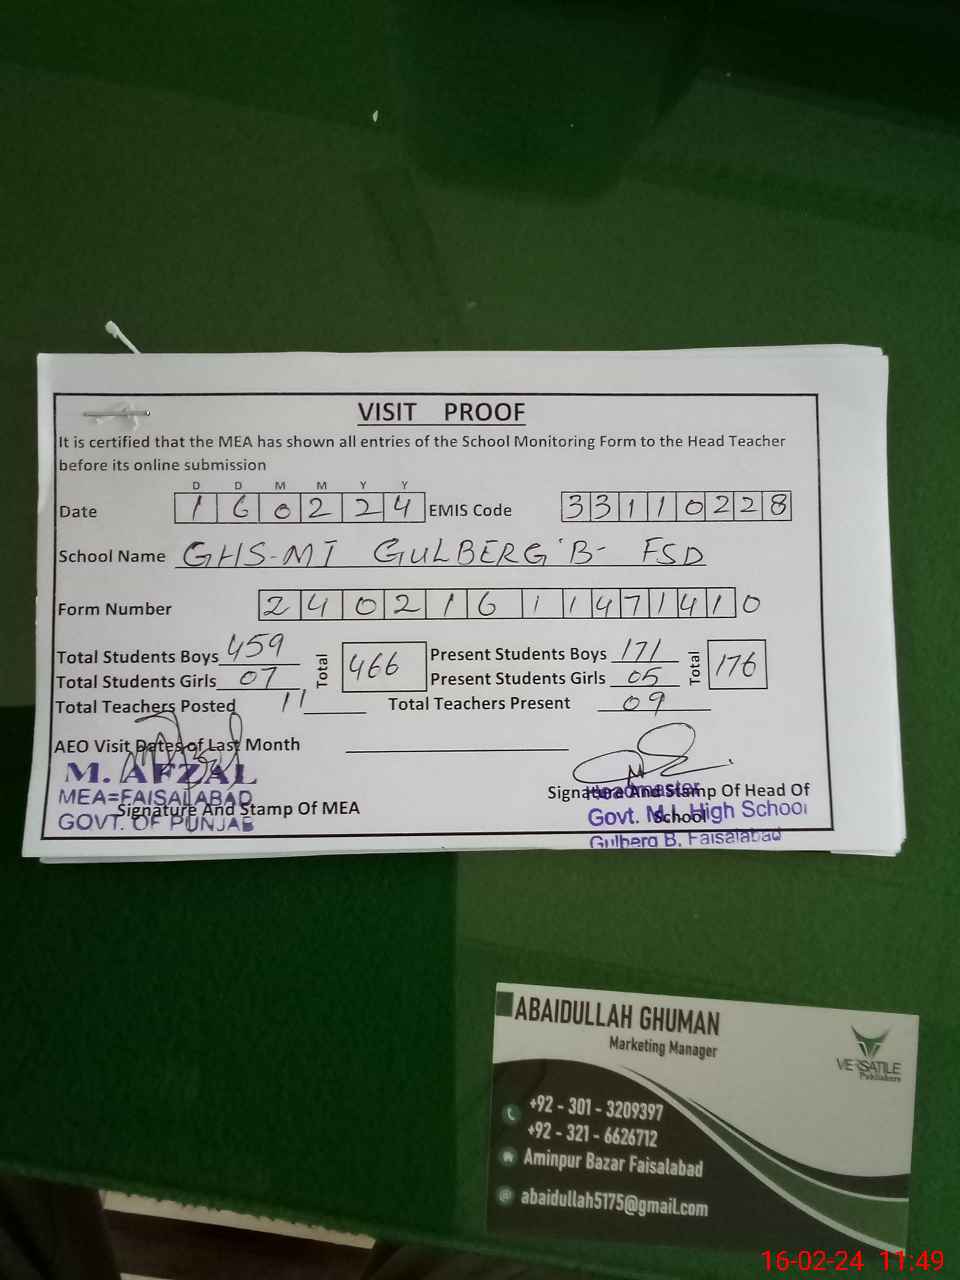 VISIT PROOF
It is certified that the MEA has shown all entries of the School Monitoring Form to the Head Teacher
before its online submission
D D M M Y Y
Date 1 6 0 2 2 4 EMIS Code 3 3 1 1 0 2 2 8
School Name GHS-MI GULBERG 'B- FSD
Form Number 2 4 0 2 1 6 1 1 4 7 1 4 1 0
Total Students Boys 459 Total 466 Present Students Boys 171 Total 176
Total Students Girls 07 Present Students Girls 05
Total Teachers Posted 11 Total Teachers Present 09
AEO Visit Dates of Last Month
M. AFZAL
MEA=FAISALABAD
GOVT. OF PUNJAB
Signature And Stamp Of MEA
Signature And Stamp Of Head Of
School
Headmaster
Govt. M.I. High School
Gulberg B, Faisalabad
ABAIDULLAH GHUMAN
Marketing Manager
VERSATILE
Publishers
+92 - 301 - 3209397
+92 - 321 - 6626712
Aminpur Bazar Faisalabad
abaidullah5175@gmail.com
16-02-24 11:49